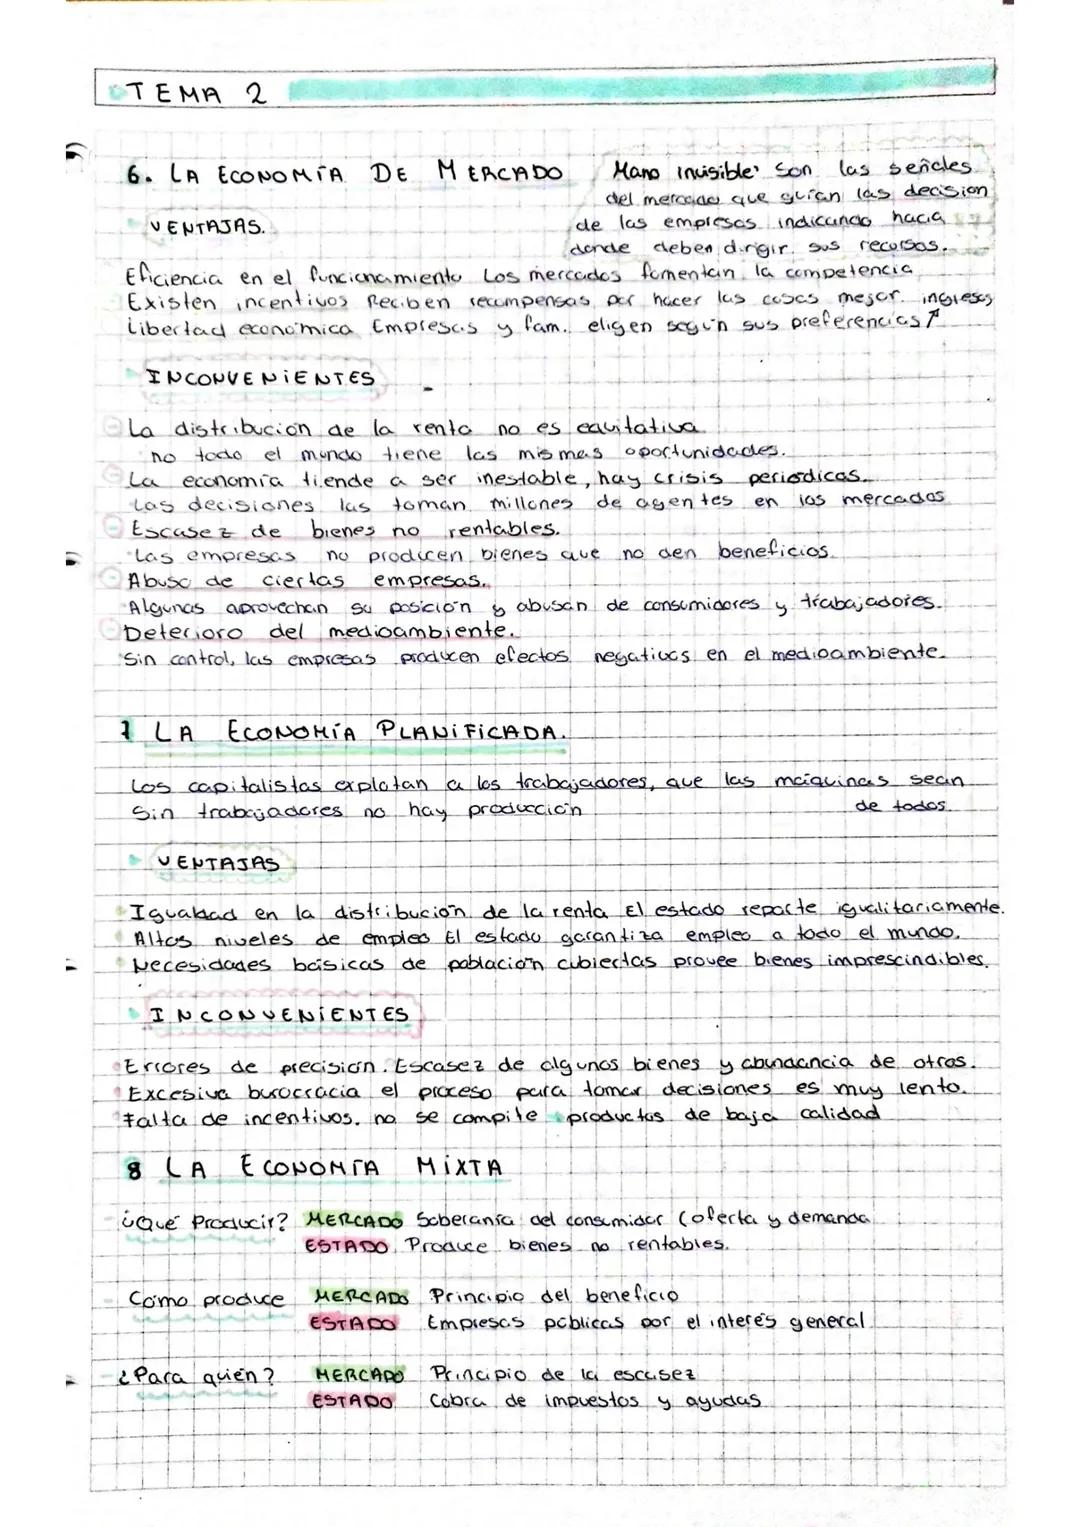 TEMA 2
6. LA ECONOMÍA DE MERCADO
Mano invisible: Son las señales
del mercado que guían las decision
de las empresas indicando hacia
donde deben dirigir sus recursos.
VENTAJAS.
Eficiencia en el funcionamiento Los mercados fomentan la competencia
Existen incentivos Reciben recompensas por hacer las cosas mejor. ingresos
Libertad económica Empresas y fam. eligen según sus preferencias ↑
INCONVENIENTES
La distribución de la renta no es equitativa
no todo el mundo tiene las mismas oportunidades.
La economía tiende a ser inestable, hay crisis periódicas.
Las decisiones las toman millones de agentes en los mercados
Escasez de bienes no rentables.
Las empresas no producen bienes que no den beneficios.
Abuso de ciertas empresas.
Algunas aprovechan su posición y abusan de consumidores y trabajadores.
Deterioro del medioambiente.
Sin control, las empresas producen efectos negativos en el medioambiente.
7 LA ECONOMÍA PLANIFICADA.
Los capitalistas explotan a los trabajadores, que las máquinas sean
de todos.
Sin trabajadores no hay producción
VENTAJAS
Igualdad en la distribución de la renta El estado reparte igualitariamente.
Altos niveles de empleo El estado garantiza empleo a todo el mundo.
Necesidades básicas de población cubiertas provee bienes imprescindibles.
INCONVENIENTES
Errores de precisión. Escasez de algunos bienes y abundancia de otros.
Excesiva burocracia el proceso para tomar decisiones es muy lento.
Falta de incentivos. no se compite productos de baja calidad
8 LA ECONOMÍA MIXTA
¿Qué Producir? MERCADO Soberanía del consumidor (oferta y demanda
ESTADO Produce bienes no rentables.
Cómo produce MERCADO Principio del beneficio
ESTADO Empresas públicas por el interés general.
¿Para quién? MERCADO Principio de la escasez
ESTADO Cobra de impuestos y ayudas